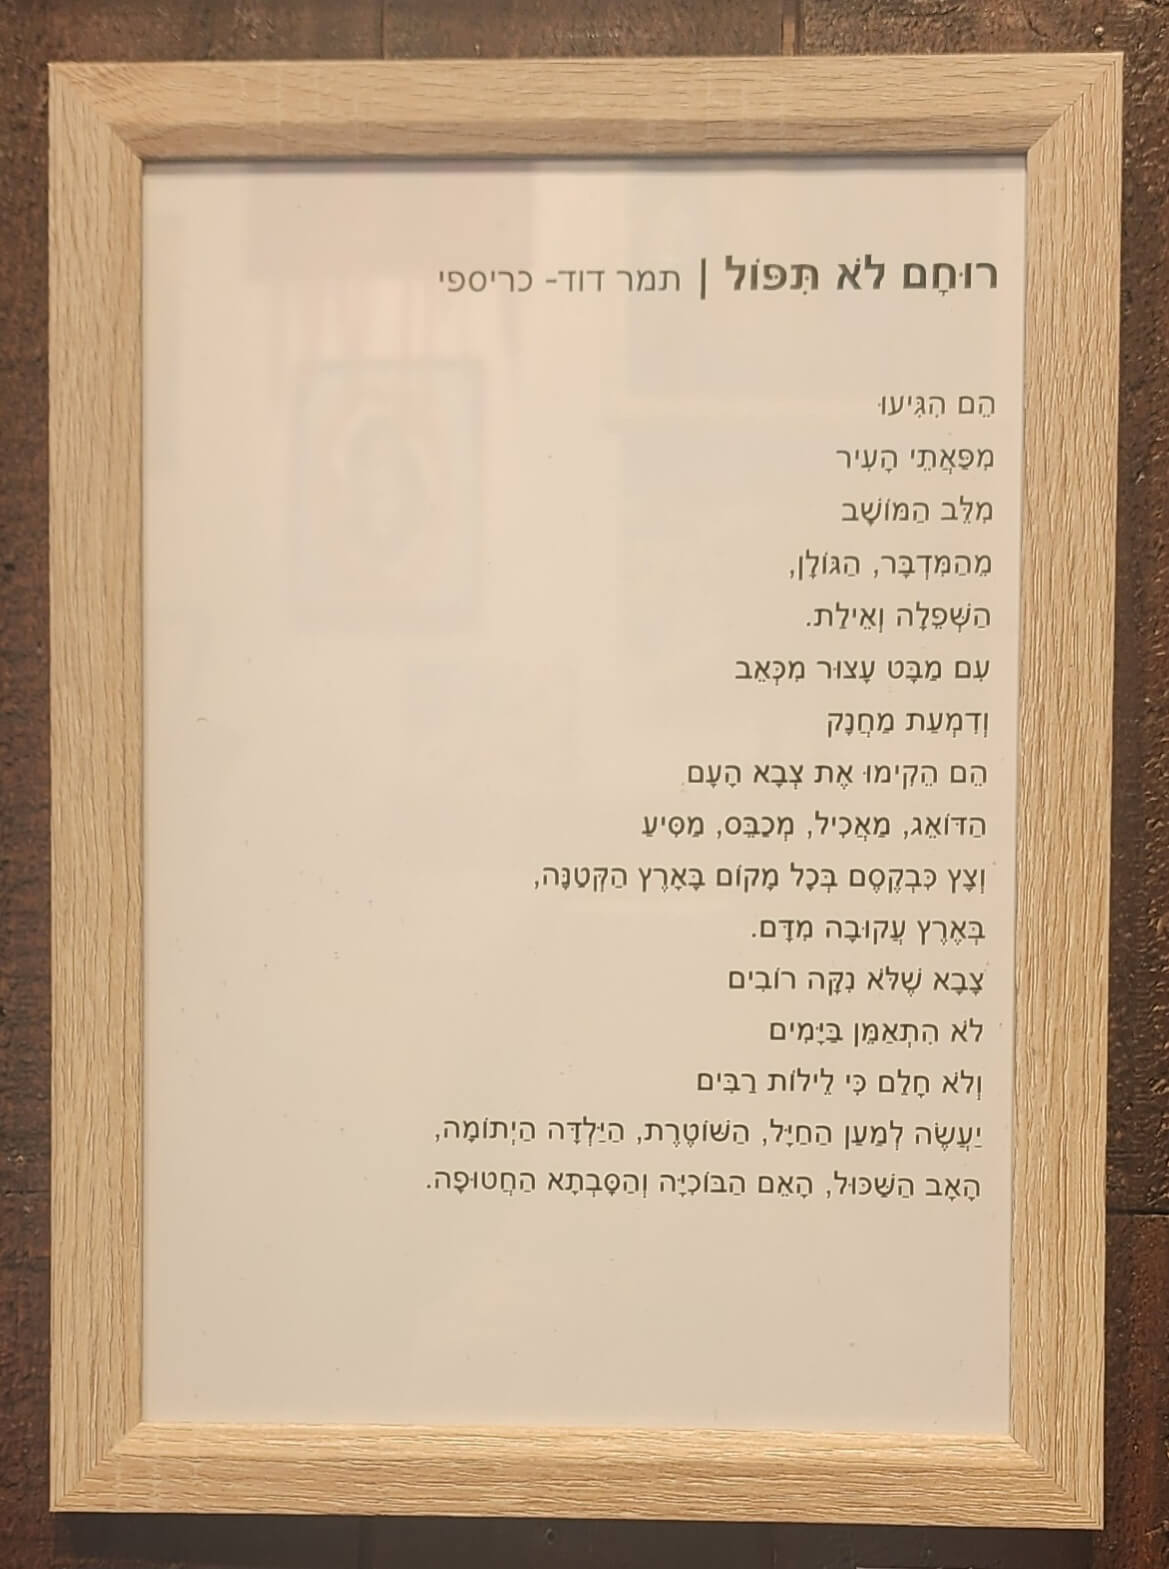 רוּחָם לֹא תִּפּוֹל | תמר דוד- כריספי
הֵם הִגִּיעוּ
מִפַּאֲתֵי הָעִיר
מִלֵּב הַמּוֹשָׁב
מֵהַמִּדְבָּר, הַגּוֹלָן,
הַשְּׁפֵלָה וְאֵילַת.
עִם מַבָּט עָצוּר מִכְּאֵב
וְדִמְעַת מַחֲנָק
הֵם הֵקִימוּ אֶת צְבָא הָעָם
הַדּוֹאֵג, מַאֲכִיל, מְכַבֵּס, מַסִּיעַ
וְצָץ כִּבְקֶסֶם בְּכָל מָקוֹם בָּאָרֶץ הַקְּטַנָּה,
בְּאֶרֶץ עֲקוּבָה מִדָּם.
צָבָא שֶׁלֹּא נִקָּה רוֹבִים
לֹא הִתְאַמֵּן בַּיָּמִים
וְלֹא חָלַם כִּי לֵילוֹת רַבִּים
יַעֲשֶׂה לְמַעַן הַחַיָּל, הַשּׁוֹטֶרֶת, הַיַּלְדָּה הַיְתוֹמָה,
הָאָב הַשַּׁכּוּל, הָאֵם הַבּוֹכִיָּה וְהַסָּבְתָא הַחֲטוּפָה.